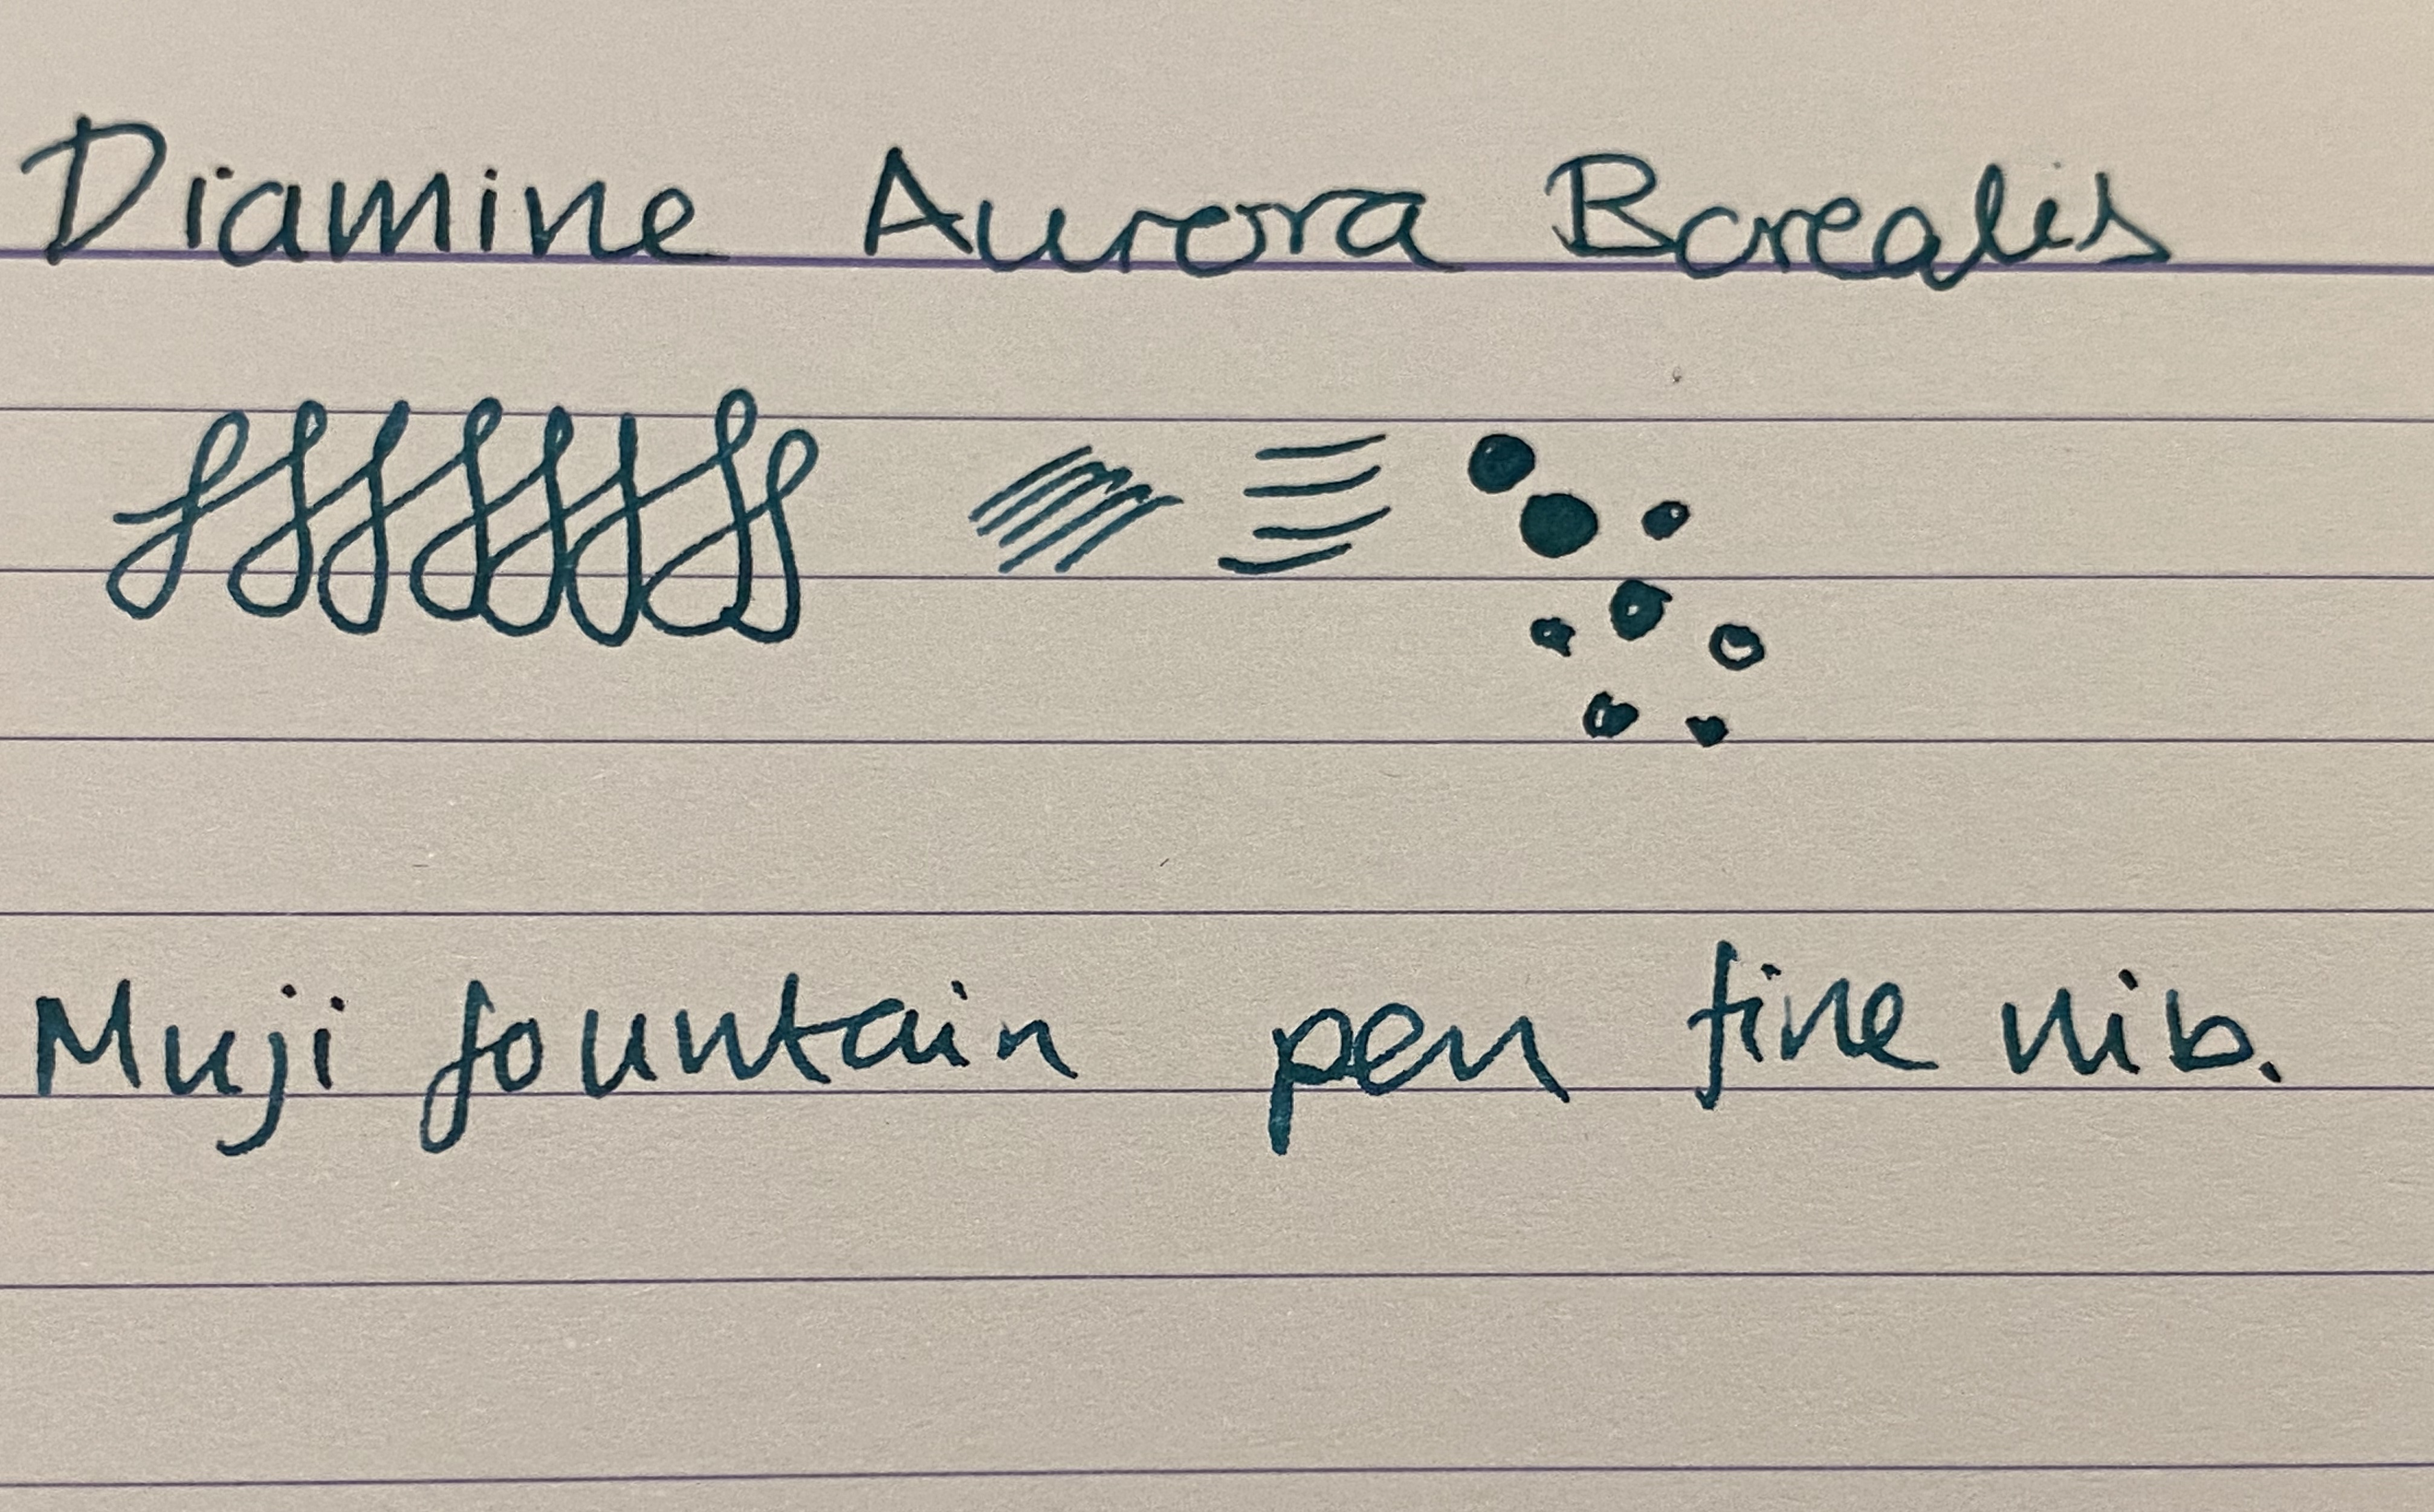 Diamine Aurora Borealis
Muji fountain pen fine nib.